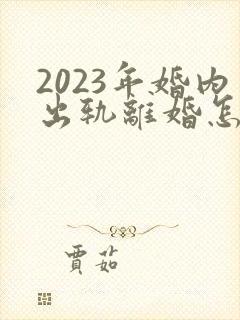 2023年婚内
出轨離婚怎
賈茹